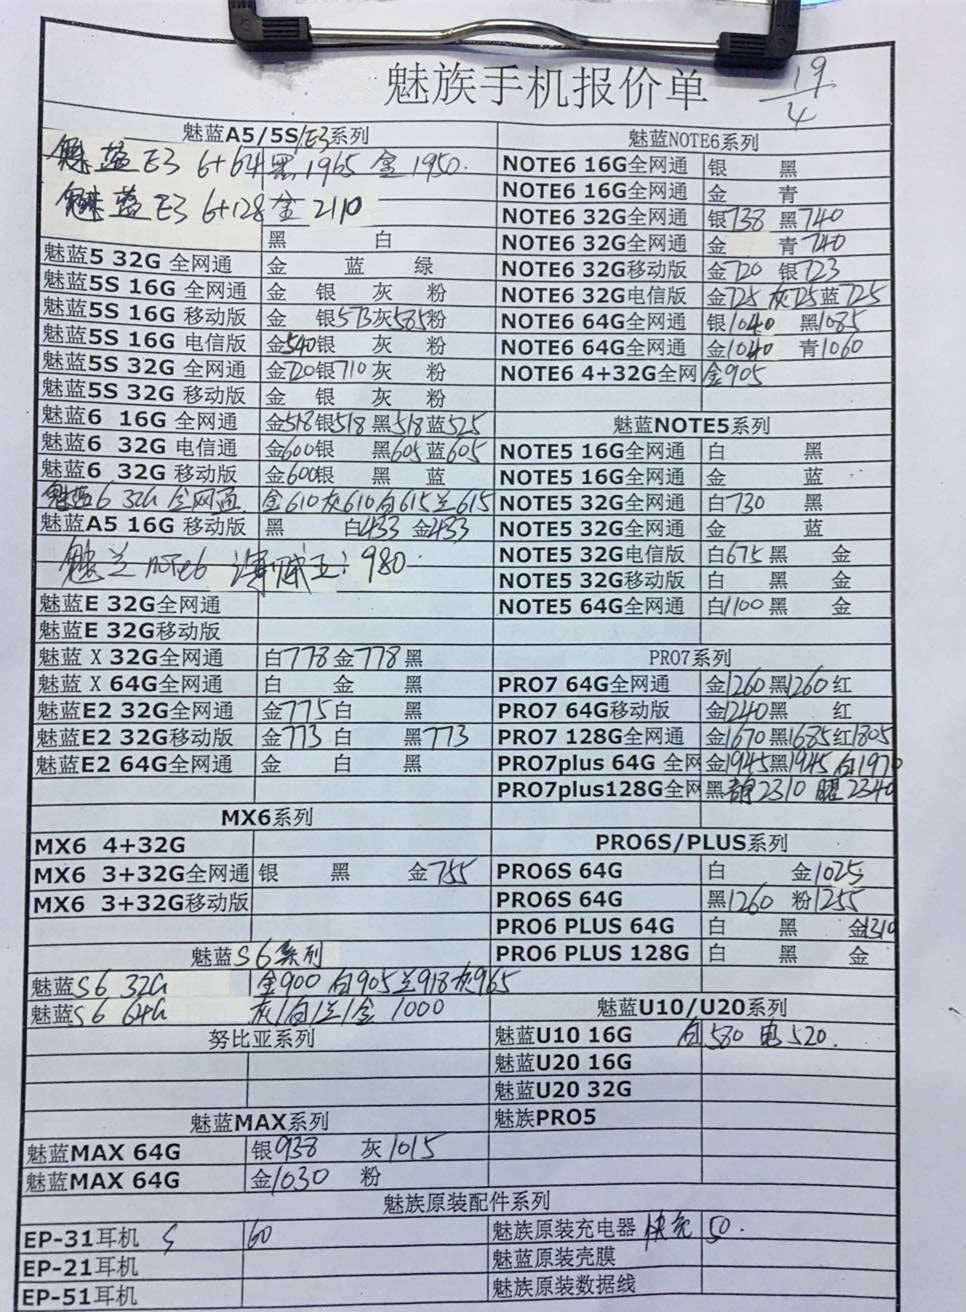 魅族手机报价单
19/4
魅蓝A5/5S/E3系列
魅蓝E3 6+64 黑1965 金1950.
魅蓝E3 6+128 金2110
黑 白
魅蓝5 32G 全网通 金 蓝 绿
魅蓝5S 16G 全网通 金 银 灰 粉
魅蓝5S 16G 移动版 金 银513灰585粉
魅蓝5S 16G 电信版 金540银 灰 粉
魅蓝5S 32G 全网通 金720银710灰 粉
魅蓝5S 32G 移动版 金 银 灰 粉
魅蓝6 16G 全网通 金518银518 黑518蓝525
魅蓝6 32G 电信通 金600银 黑605蓝605
魅蓝6 32G 移动版 金600银 黑 蓝
魅蓝6 32G 全网通. 金610灰610白615兰615
魅蓝A5 16G 移动版 黑 白433 金433
魅兰note6 海贼王:980
魅蓝E 32G全网通
魅蓝E 32G移动版
魅蓝 X 32G全网通 白778金778黑
魅蓝 X 64G全网通 白 金 黑
魅蓝E2 32G全网通 金775白 黑
魅蓝E2 32G移动版 金773 白 黑773
魅蓝E2 64G全网通 金 白 黑
MX6系列
MX6 4+32G
MX6 3+32G全网通 银 黑 金755
MX6 3+32G移动版
魅蓝S6系列
魅蓝S6 32G 金900 白905兰918灰965
魅蓝S6 64G 灰/白/兰/金 1000
努比亚系列
魅蓝MAX系列
魅蓝MAX 64G 银938 灰1015
魅蓝MAX 64G 金1030 粉
魅蓝NOTE6系列
NOTE6 16G全网通 银 黑
NOTE6 16G全网通 金 青
NOTE6 32G全网通 银738 黑740
NOTE6 32G全网通 金 青740
NOTE6 32G移动版 金720 银723
NOTE6 32G电信版 金725灰725蓝725
NOTE6 64G全网通 银1040 黑1085
NOTE6 64G全网通 金1040 青1060
NOTE6 4+32G全网 金905
魅蓝NOTE5系列
NOTE5 16G全网通 白 黑
NOTE5 16G全网通 金 蓝
NOTE5 32G全网通 白730 黑
NOTE5 32G全网通 金 蓝
NOTE5 32G电信版 白675黑 金
NOTE5 32G移动版 白 黑 金
NOTE5 64G全网通 白1100黑 金
PRO7系列
PRO7 64G全网通 金1260黑1260红
PRO7 64G移动版 金1240黑 红
PRO7 128G全网通 金1670黑1685红1805
PRO7plus 64G 全网 金1945黑1945白1970
PRO7plus128G全网 黑静2310 曜2340
PRO6S/PLUS系列
PRO6S 64G 白 金1025
PRO6S 64G 黑1260 粉1255
PRO6 PLUS 64G 白 黑 金1310
PRO6 PLUS 128G 白 黑 金
魅蓝U10/U20系列
魅蓝U10 16G 白580 电520.
魅蓝U20 16G
魅蓝U20 32G
魅族PRO5
魅族原装配件系列
EP-31耳机 60
EP-21耳机
EP-51耳机
魅族原装充电器 快充 50.
魅蓝原装壳膜
魅族原装数据线